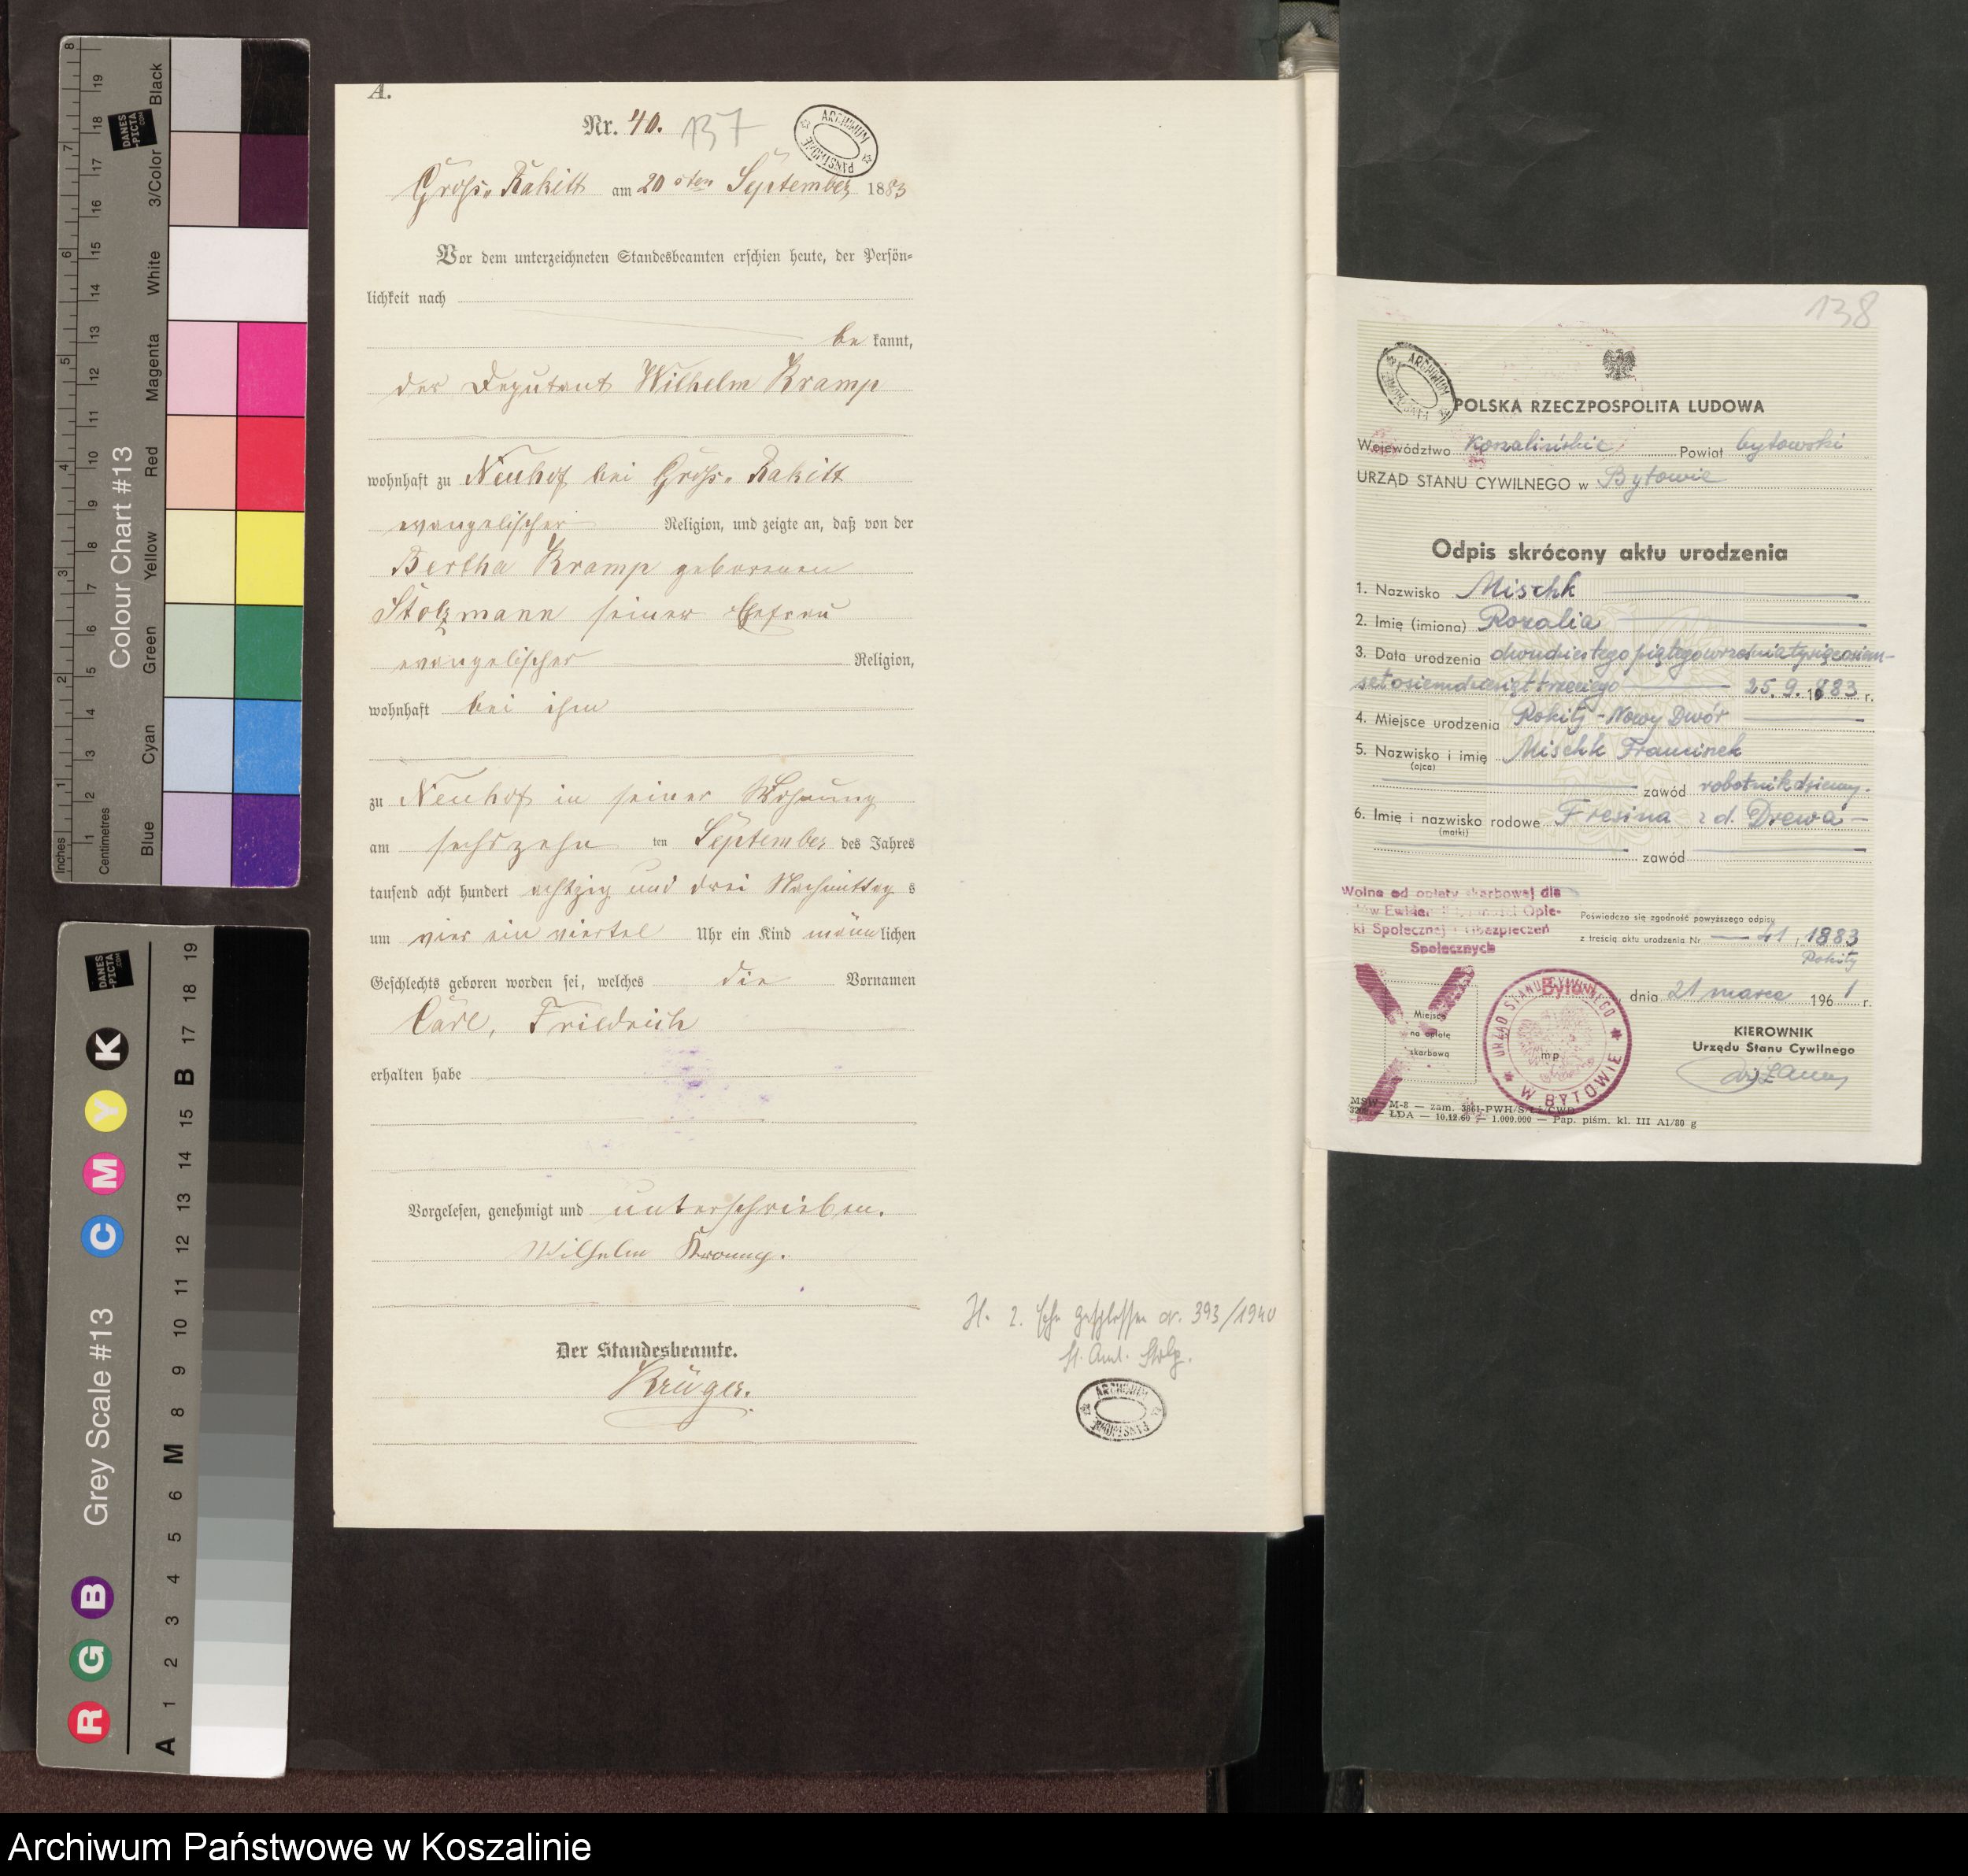 A.
Nr. 40. 137
ARCHIWUM PAŃSTWOWE
Gross-Rakitt am 20 sten September 1883
Vor dem unterzeichneten Standesbeamten erschien heute, der Persön-
lichkeit nach
be kannt,
der Deputant Wilhelm Kramp
wohnhaft zu Neuhof bei Gross-Rakitt
evangelischer Religion, und zeigte an, daß von der
Bertha Kramp geborenen
Stolzmann seiner Ehefrau
evangelischer Religion,
wohnhaft bei ihm
zu Neuhof in seiner Wohnung
am sechszehn ten September des Jahres
tausend acht hundert achtzig und drei Nachmittag s
um vier ein viertel Uhr ein Kind männlichen
Geschlechts geboren worden sei, welches die Vornamen
Carl, Friedrich
erhalten habe
Vorgelesen, genehmigt und unterschrieben.
Wilhelm Kramp.
Der Standesbeamte.
Krüger.
H. 2. Ehe geschlossen nr. 393/1940
St. Amt. Stolp.
ARCHIWUM PAŃSTWOWE
138
ARCHIWUM PAŃSTWOWE
POLSKA RZECZPOSPOLITA LUDOWA
Województwo Koszalińskie Powiat bytowski
URZĄD STANU CYWILNEGO w Bytowie
Odpis skrócony aktu urodzenia
1. Nazwisko Mischk
2. Imię (imiona) Rozalia
3. Data urodzenia dwudziestego piątego września tysiąc osiem-
set osiemdziesiąt trzeciego 25. 9. 1883 r.
4. Miejsce urodzenia Rokity - Nowy Dwór
5. Nazwisko i imię Mischk Franciszek
(ojca)
zawód robotnik dzienny.
6. Imię i nazwisko rodowe Fresina z d. Drewa
(matki)
zawód
Wolne od opłaty skarbowej dla
Opie-
ki Społecznej i Ubezpieczeń
Społecznych
Poświadcza się zgodność powyższego odpisu
z treścią aktu urodzenia Nr 41, 1883
Rokity
Bytów dnia 21 marca 1961 r.
Miejsce
na opłatę
skarbową
mp.
URZĄD STANU CYWILNEGO W BYTOWIE
KIEROWNIK
Urzędu Stanu Cywilnego
MSW M-8 — zam. 3861-PWH/S/L1/CWD
ŁDA — 10.12.60 — 1.000.000 — Pap. piśm. kl. III A1/80 g
Colour Chart #13
Blue Cyan Green Yellow Red Magenta White 3/Color Black
Inches 1 2 3 4 5 6 7 8
Centimetres 1 2 3 4 5 6 7 8 9 10 11 12 13 14 15 16 17 18 19
DANES-PICTA.COM
Grey Scale #13
R G B C M Y K
A 1 2 3 4 5 6 M 8 9 10 11 12 13 14 15 B 17 18 19
DANES-PICTA.COM
Archiwum Państwowe w Koszalinie